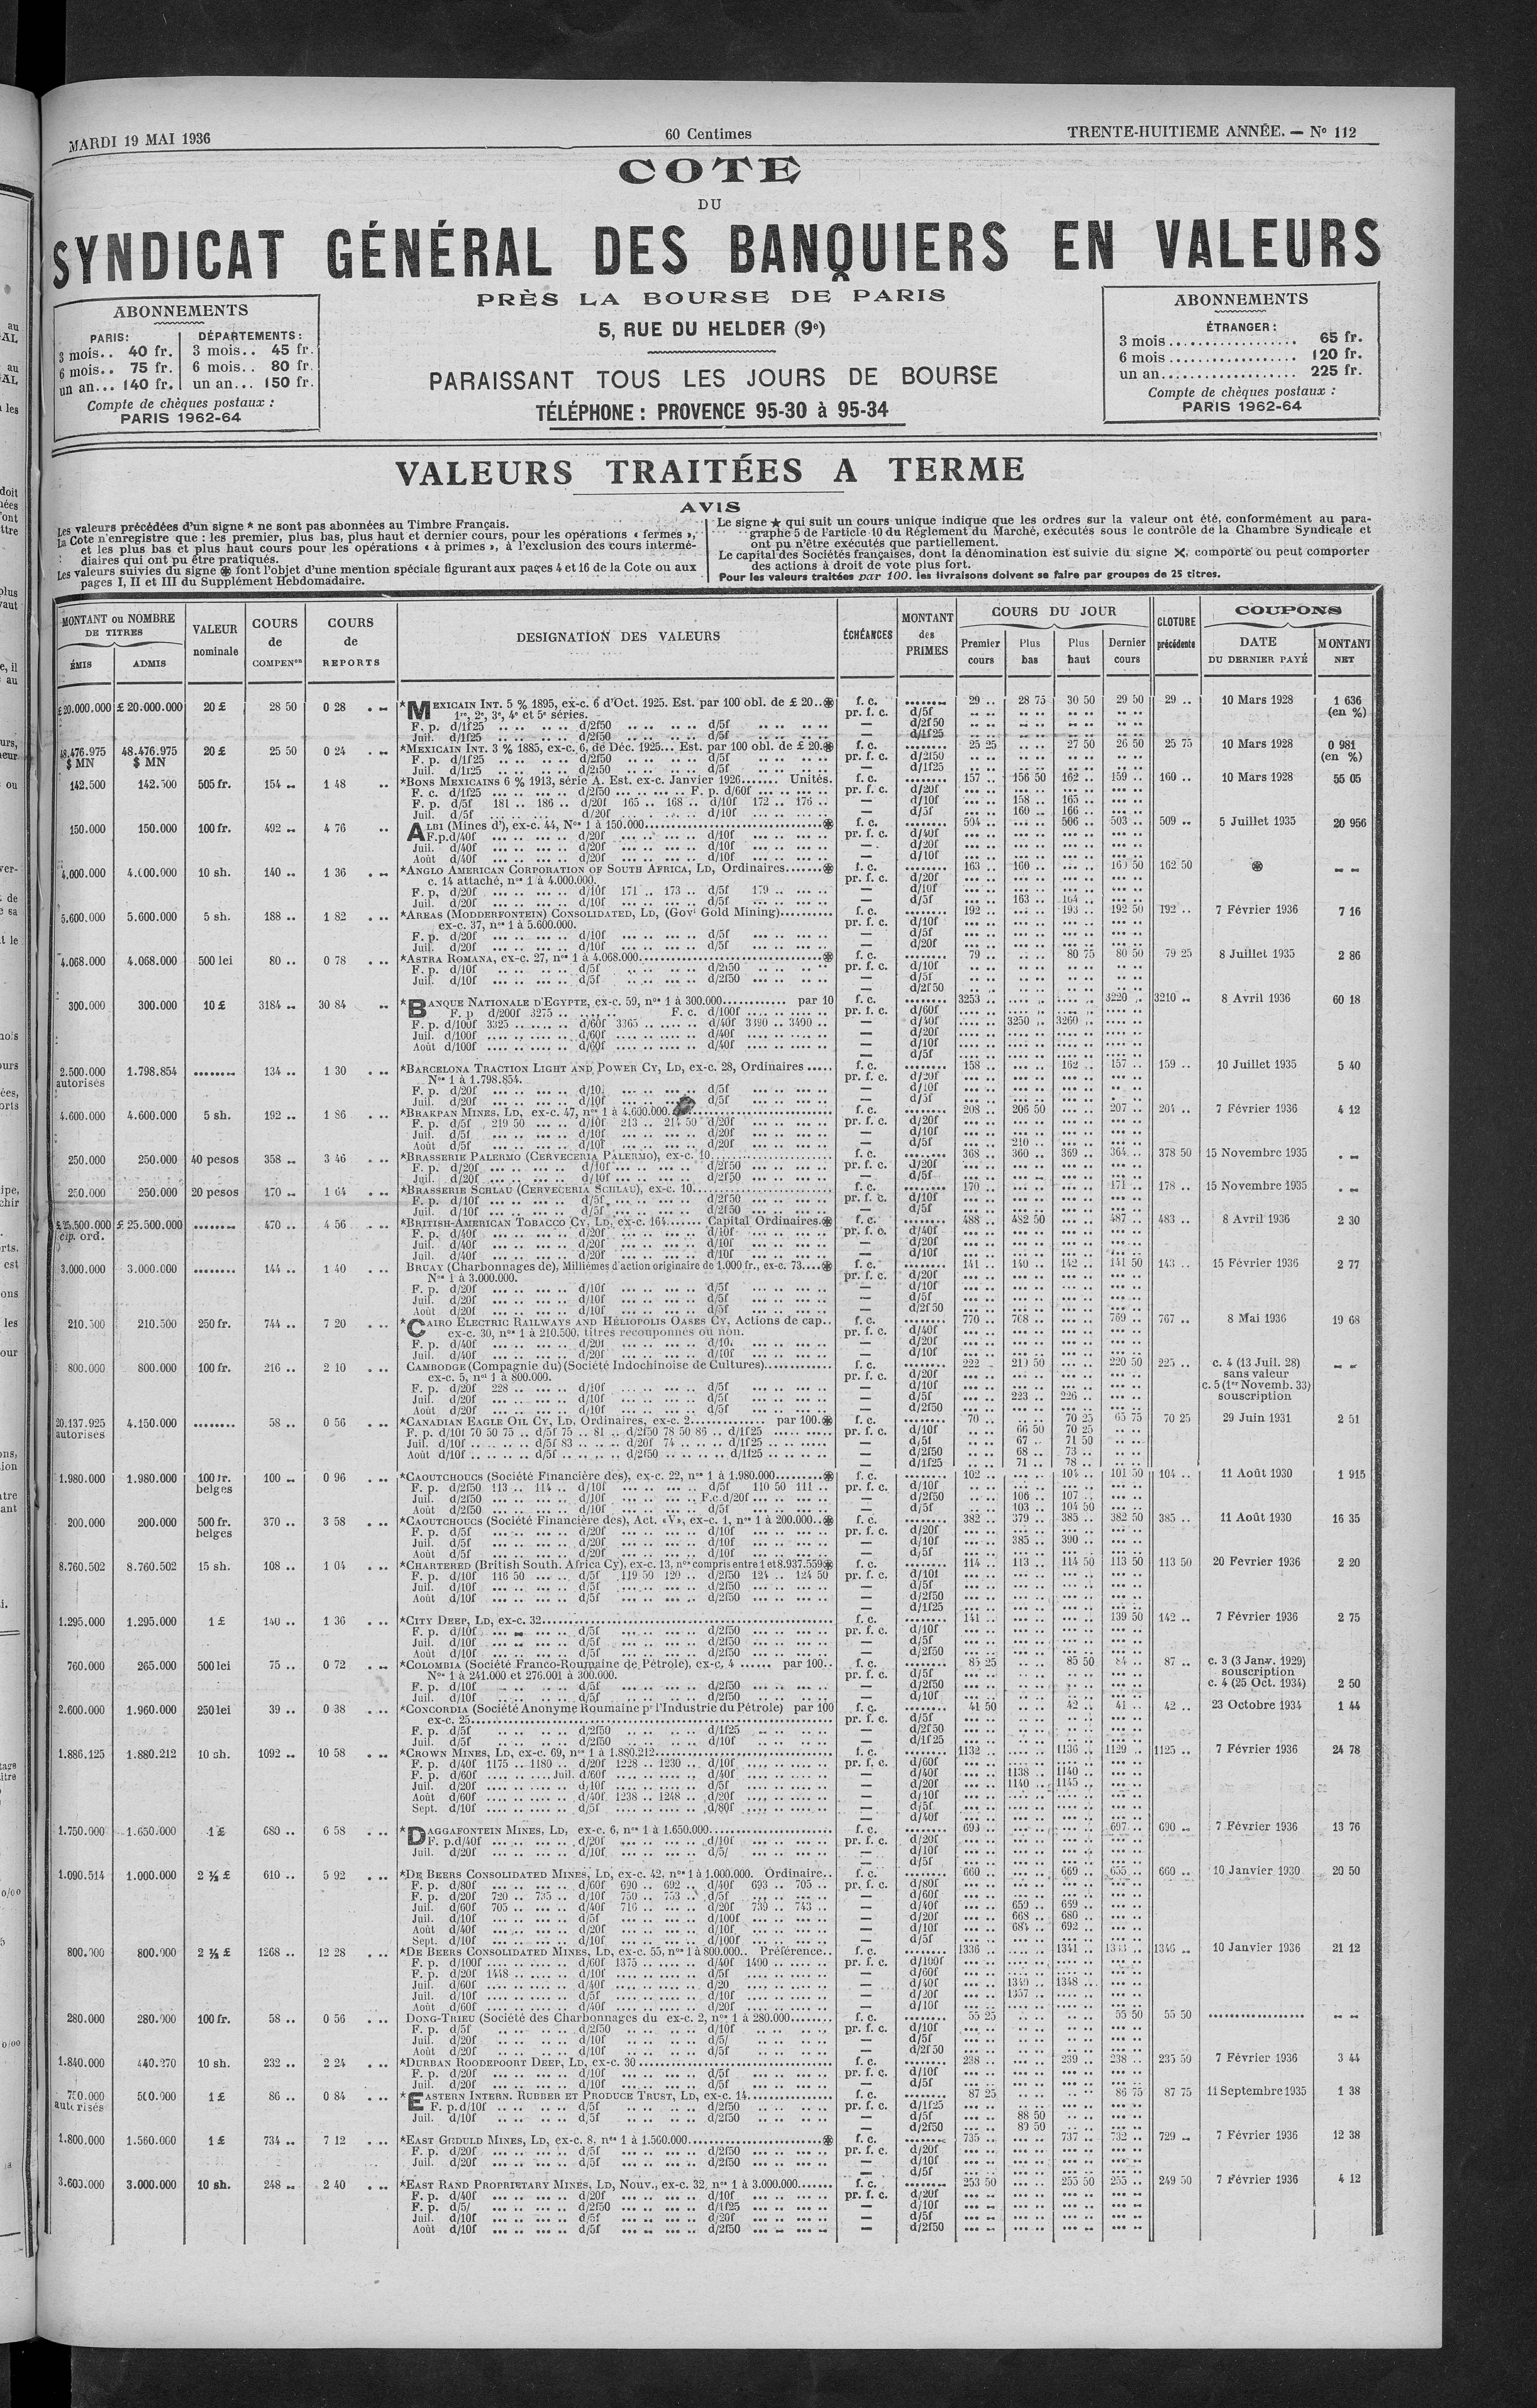 MARDI 19 MAI 1936
60 Centimes
TRENTE-HUITIEME ANNÉE. — No 112
COTE
DU
SYNDICAT GÉNÉRAL DES BANQUIERS EN VALEURS
PRÈS LA BOURSE DE PARIS
5, RUE DU HELDER (9e)
PARAISSANT TOUS LES JOURS DE BOURSE
TÉLÉPHONE : PROVENCE 95-30 à 95-34
ABONNEMENTS
PARIS: DÉPARTEMENTS :
3 mois.. 40 fr. 3 mois.. 45 fr.
6 mois.. 75 fr. 6 mois.. 80 fr.
un an... 140 fr. un an... 150 fr.
Compte de chèques postaux :
PARIS 1962-64
ABONNEMENTS
ÉTRANGER :
3 mois.................. 65 fr.
6 mois.................. 120 fr.
un an................... 225 fr.
Compte de chèques postaux :
PARIS 1962-64
VALEURS TRAITÉES A TERME
AVIS
Les valeurs précédées d'un signe * ne sont pas abonnées au Timbre Français.
La Cote n'enregistre que : les premier, plus bas, plus haut et dernier cours, pour les opérations « fermes »,
et les plus bas et plus haut cours pour les opérations « à primes », à l'exclusion des cours intermé-
diaires qui ont pu être pratiqués.
Les valeurs suivies du signe ⊛ font l'objet d'une mention spéciale figurant aux pages 4 et 16 de la Cote ou aux
pages I, II et III du Supplément Hebdomadaire.
Le signe ★ qui suit un cours unique indique que les ordres sur la valeur ont été, conformément au para-
graphe 5 de l'article 10 du Règlement du Marché, exécutés sous le contrôle de la Chambre Syndicale et
ont pu n'être exécutés que partiellement.
Le capital des Sociétés françaises, dont la dénomination est suivie du signe ✕, comporte ou peut comporter
des actions à droit de vote plus fort.
Pour les valeurs traitées par 100, les livraisons doivent se faire par groupes de 25 titres.
MONTANT ou NOMBRE DE TITRES
ÉMIS ADMIS
VALEUR nominale
COURS de COMPENon
COURS de REPORTS
DESIGNATION DES VALEURS
ÉCHÉANCES
MONTANT des PRIMES
COURS DU JOUR
Premier cours Plus bas Plus haut Dernier cours
CLOTURE précédente
COUPONS
DATE DU DERNIER PAYÉ MONTANT NET
£20.000.000 £ 20.000.000 20 £ 28 50 0 28 *MEXICAIN INT. 5 % 1895, ex-c. 6 d'Oct. 1925. Est. par 100 obl. de £ 20..⊛ f. c. 29 .. 28 75 30 50 29 50 29 .. 10 Mars 1928 1 636 (en %)
1re, 2e, 3e, 4e et 5e séries.
48.476.975 $ MN 48.476.975 $ MN 20 £ 25 50 0 24 *MEXICAIN INT. 3 % 1885, ex-c. 6, de Déc. 1925... Est. par 100 obl. de £ 20.⊛ f. c. 25 25 27 50 26 50 25 75 10 Mars 1928 0 981 (en %)
142.500 142.500 505 fr. 154 1 48 *BONS MEXICAINS 6 % 1913, série A. Est. ex-c. Janvier 1926...... Unités. f. c. 157 .. 156 50 162 .. 159 .. 160 .. 10 Mars 1928 55 05
F. p. d/5f 181 .. 186 .. d/20f 165 .. 168 .. d/10f 172 .. 176 .. — d/10f 158 .. 165 ..
Juil. d/5f d/20f d/10f — d/5f 160 .. 166 ..
150.000 150.000 100 fr. 492 4 76 ALBI (Mines d'), ex-c. 44, Nos 1 à 150.000 ⊛ f. c. 504 .. 506 .. 503 .. 509 .. 5 Juillet 1935 20 956
4.000.000 4.000.000 10 sh. 140 .. 1 36 *ANGLO AMERICAN CORPORATION OF SOUTH AFRICA, LD, Ordinaires.......⊛ f. c. 163 .. 160 .. 160 50 162 50 ⊛
c. 14 attaché, nos 1 à 4.000.000.
F. p. d/20f d/10f 171 .. 173 .. d/5f 179 ..
Juil. d/20f d/10f d/5f — d/5f 163 .. 164 ..
5.600.000 5.600.000 5 sh. 188 .. 1 82 *AREAS (MODDERFONTEIN) CONSOLIDATED, LD, (Govt Gold Mining) f. c. 192 .. 193 .. 192 50 192 .. 7 Février 1936 7 16
ex-c. 37, nos 1 à 5.600.000.
4.068.000 4.068.000 500 lei 80 .. 0 78 *ASTRA ROMANA, ex-c. 27, nos 1 à 4.068.000 ⊛ f. c. 79 .. 80 75 80 50 79 25 8 Juillet 1935 2 86
300.000 300.000 10 £ 3184 30 84 *BANQUE NATIONALE D'EGYPTE, ex-c. 59, nos 1 à 300.000............ par 10 f. c. 3253 .. 3220 .. 3210 .. 8 Avril 1936 60 18
F. p d/200f 3275 .. F. c. d/100f
F. p. d/100f 3325 .. d/60f 3365 .. d/40f 3390 .. 3400 .. — d/40f 3250 .. 3260 ..
2.500.000 autorisés 1.798.854 134 .. 1 30 *BARCELONA TRACTION LIGHT AND POWER CY, LD, ex-c. 28, Ordinaires ..... f. c. 158 .. 162 .. 157 .. 159 .. 10 Juillet 1935 5 40
Nos 1 à 1.798.854.
4.600.000 4.600.000 5 sh. 192 .. 1 86 *BRAKPAN MINES, LD, ex-c. 47, nos 1 à 4.600.000. f. c. 208 .. 206 50 207 .. 204 .. 7 Février 1936 4 12
F. p. d/5f 219 50 d/10f 213 .. 214 50 d/20f
Août d/5f d/10f d/20f — d/5f 210 ..
250.000 250.000 40 pesos 358 3 46 *BRASSERIE PALERMO (CERVECERIA PALERMO), ex-c. 10 f. c. 368 .. 360 .. 369 .. 364 .. 378 50 15 Novembre 1935
250.000 250.000 20 pesos 170 1 64 *BRASSERIE SCHLAU (CERVECERIA SCHLAU), ex-c. 10 f. c. 170 .. 171 .. 178 .. 15 Novembre 1935
£ 25.500.000 cap. ord. £ 25.500.000 470 .. 4 56 *BRITISH-AMERICAN TOBACCO CY, LD, ex-c. 164....... Capital Ordinaires.⊛ f. c. 488 .. 482 50 487 .. 483 .. 8 Avril 1936 2 30
3.000.000 3.000.000 144 .. 1 40 BRUAY (Charbonnages de), Millièmes d'action originaire de 1.000 fr., ex-c. 73....⊛ f. c. 141 .. 140 .. 142 .. 141 50 143 .. 15 Février 1936 2 77
Nos 1 à 3.000.000.
210.500 210.500 250 fr. 744 .. 7 20 *CAIRO ELECTRIC RAILWAYS AND HELIOPOLIS OASES CY, Actions de cap.. f. c. 770 .. 768 .. 769 .. 767 .. 8 Mai 1936 19 68
ex-c. 30, nos 1 à 210.500. titres recouponnés ou non.
800.000 800.000 100 fr. 216 .. 2 10 CAMBODGE (Compagnie du) (Société Indochinoise de Cultures) f. c. 222 219 50 220 50 225 .. c. 4 (13 Juil. 28) sans valeur c. 5 (1er Novemb. 33) souscription
ex-c. 5, nos 1 à 800.000.
F. p. d/20f 228 .. d/10f d/5f
Juil. d/20f d/10f d/5f — d/5f 223 .. 226 ..
20.137.925 autorisés 4.150.000 58 .. 0 56 *CANADIAN EAGLE OIL CY, LD, Ordinaires, ex-c. 2.............. par 100.⊛ f. c. 70 .. 70 25 65 75 70 25 29 Juin 1931 2 51
F. p. d/10f 70 50 75 .. d/5f 75 .. 81 .. d/2f50 78 50 86 .. d/1f25 pr. f. c. d/10f 66 50 70 25
Juil. d/10f d/5f 83 .. d/20f 74 .. d/1f25 — d/5f 67 .. 71 50
Août d/10f d/5f d/2f50 d/1f25 — d/2f50 68 .. 73 ..
— d/1f25 71 .. 78 ..
1.980.000 1.980.000 100 fr. belges 100 0 96 *CAOUTCHOUCS (Société Financière des), ex-c. 22, nos 1 à 1.980.000 ⊛ f. c. 102 .. 104 .. 101 50 104 .. 11 Août 1930 1 915
F. p. d/2f50 113 .. 114 .. d/10f d/5f 110 50 111 .. pr. f. c. d/10f
Juil. d/2f50 d/10f F.c.d/20f — d/2f50 106 .. 107 ..
Août d/2f50 d/10f d/5f — d/5f 103 .. 104 50
200.000 200.000 500 fr. belges 370 .. 3 58 *CAOUTCHOUCS (Société Financière des), Act. «V», ex-c. 1, nos 1 à 200.000..⊛ f. c. 382 .. 379 .. 385 .. 382 50 385 .. 11 Août 1930 16 35
Juil. d/5f d/20f d/10f — d/10f 385 .. 390 ..
8.760.502 8.760.502 15 sh. 108 .. 1 04 *CHARTERED (British South. Africa Cy), ex-c. 13, nos compris entre 1 et 8.937.559⊛ f. c. 114 .. 113 .. 114 50 113 50 113 50 20 Février 1936 2 20
F. p. d/10f 116 50 d/5f 119 50 120 .. d/2f50 124 .. 124 50 pr. f. c. d/10f
1.295.000 1.295.000 1 £ 140 .. 1 36 *CITY DEEP, LD, ex-c. 32 f. c. 141 .. 139 50 142 .. 7 Février 1936 2 75
760.000 265.000 500 lei 75 .. 0 72 *COLOMBIA (Société Franco-Roumaine de Pétrole), ex-c. 4 ...... par 100.. f. c. 85 25 85 50 84 .. 87 .. c. 3 (3 Janv. 1929) souscription c. 4 (25 Oct. 1934) 2 50
Nos 1 à 241.000 et 276.001 à 300.000.
2.600.000 1.960.000 250 lei 39 .. 0 38 *CONCORDIA (Société Anonyme Roumaine pr l'Industrie du Pétrole) par 100 f. c. 41 50 42 .. 41 .. 42 .. 23 Octobre 1934 1 44
ex-c. 25
1.886.125 1.880.212 10 sh. 1092 10 58 *CROWN MINES, LD, ex-c. 69, nos 1 à 1.880.212 f. c. 1132 .. 1136 .. 1129 .. 1125 .. 7 Février 1936 24 78
F. p. d/40f 1175 .. 1180 .. d/20f 1228 .. 1230 .. d/10f pr. f. c. d/60f
F. p. d/60f Juil. d/60f d/40f — d/40f 1138 .. 1140 ..
Juil. d/20f d/10f d/5f — d/20f 1140 .. 1145 ..
Août d/60f d/40f 1238 .. 1248 .. d/20f — d/10f
Sept. d/10f d/5f d/80f — d/5f
1.750.000 1.650.000 1 £ 680 .. 6 58 *DAGGAFONTEIN MINES, LD, ex-c. 6, nos 1 à 1.650.000 f. c. 693 .. 697 .. 690 .. 7 Février 1936 13 76
1.090.514 1.000.000 2 ½ £ 610 .. 5 92 *DE BEERS CONSOLIDATED MINES, LD, ex-c. 42, nos 1 à 1.000.000. Ordinaire.. f. c. 660 .. 669 .. 655 .. 660 .. 10 Janvier 1930 20 50
F. p. d/80f d/60f 690 .. 692 .. d/40f 693 .. 705 .. pr. f. c. d/80f
F. p. d/20f 720 .. 735 .. d/10f 750 .. 753 .. d/5f — d/60f
Juil. d/60f 705 .. d/40f 716 .. d/20f 739 .. 743 .. — d/40f 659 .. 669 ..
Juil. d/10f d/5f d/100f — d/20f 668 .. 680 ..
Août d/40f d/20f d/10f — d/10f 684 .. 692 ..
800.000 800.000 2 ½ £ 1268 .. 12 28 *DE BEERS CONSOLIDATED MINES, LD, ex-c. 55, nos 1 à 800.000.. Préférence.. f. c. 1336 .. 1341 .. 1346 .. 10 Janvier 1936 21 12
F. p. d/100f d/60f 1375 .. d/40f 1400 .. pr. f. c. d/100f
F. p. d/20f 1448 .. d/10f d/5f — d/60f
Juil. d/60f d/40f d/20 — d/40f 1340 .. 1348 ..
Juil. d/10f d/5f d/10f — d/20f 1357 ..
280.000 280.000 100 fr. 58 .. 0 56 DONG-TRIEU (Société des Charbonnages du ex-c. 2, nos 1 à 280.000 f. c. 55 25 55 50 55 50
1.840.000 440.270 10 sh. 232 .. 2 24 *DURBAN ROODEPOORT DEEP, LD, ex-c. 30 f. c. 238 .. 239 .. 238 .. 235 50 7 Février 1936 3 44
750.000 autorisés 500.000 1 £ 86 .. 0 84 *EASTERN INTERN. RUBBER ET PRODUCE TRUST, LD, ex-c. 14 f. c. 87 25 86 75 87 75 11 Septembre 1935 1 38
Juil. d/10f d/5f d/2f50 — d/5f 88 50
— d/2f50 89 50
1.800.000 1.560.000 1 £ 734 7 12 *EAST GEDULD MINES, LD, ex-c. 8, nos 1 à 1.560.000 ⊛ f. c. 735 .. 737 .. 732 .. 729 7 Février 1936 12 38
3.600.000 3.000.000 10 sh. 248 2 40 *EAST RAND PROPRIETARY MINES, LD, Nouv., ex-c. 32, nos 1 à 3.000.000 f. c. 253 50 255 50 255 .. 249 50 7 Février 1936 4 12
F. p. d/40f d/20f d/10f pr. f. c. d/20f
F. p. d/5/ d/2f50 d/1f25 — d/10f
Juil. d/10f d/5f d/20f — d/5f
Août d/10f d/5f d/2f50 — d/2f50